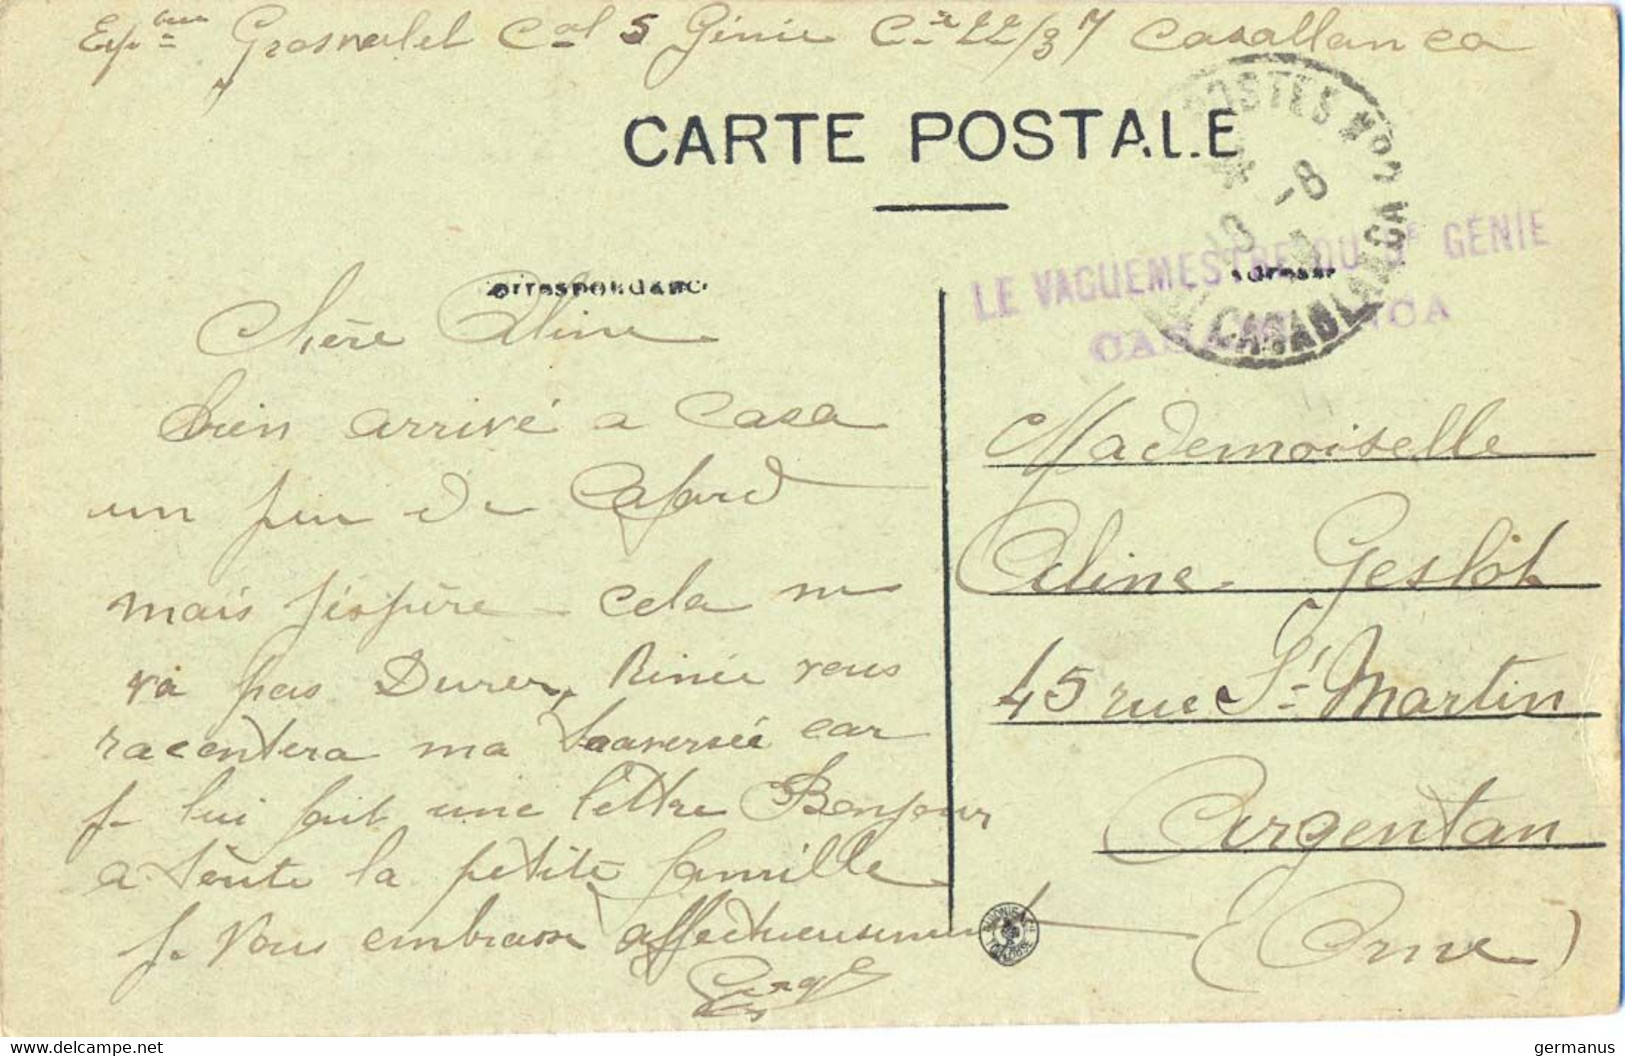 Grosvalet Cal 5 Génie Cie 22/37 Casablanca
CARTE POSTALE
Correspondance
Adresse
POSTES MAROC
CASABLANCA
-8
LE VAGUEMESTRE DU 5e GÉNIE
CASABLANCA
Chère Aline
bien arrivé a Casa
un peu de Cafard
mais j'éspère cela ne
va pas Durer, Rénée vous
racontera ma traversée car
je lui fait une lettre Bonjour
a toute la petite famille
je vous embrasse affectueusement
Mademoiselle
Aline Geslôt
45 rue St Martin
Argentan
(Orne)
germanus